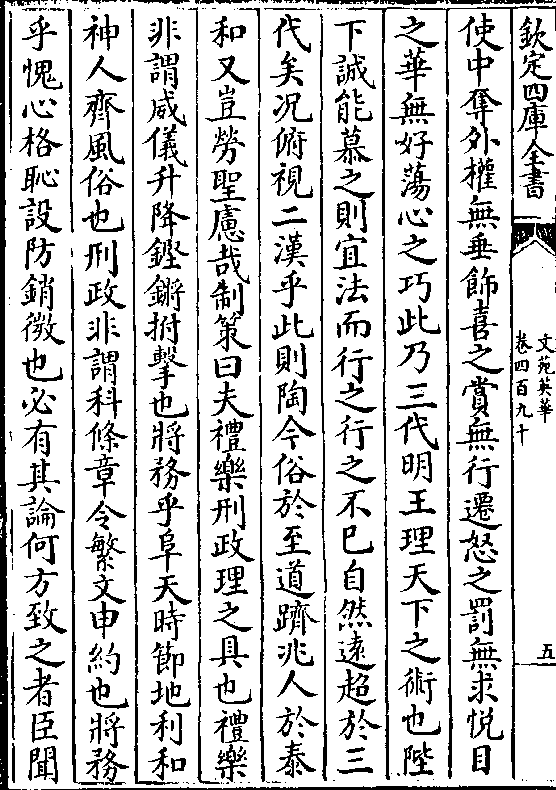 欽定四庫全書
文苑英華
卷四百九十
五
使中奪外權無垂飾喜之賞無行遷怒之罰無求悅目
之華無好蕩心之巧此乃三代明王理天下之術也陛
下誠能慕之則宜法而行之行之不已自然遠超於三
代矣况俯視二漢乎此則陶今俗於至道躋兆人於泰
和又豈勞聖慮哉制策曰夫禮樂刑政理之具也禮樂
非謂威儀升降鏗鏘拊擊也將務乎阜天時節地利和
神人齊風俗也刑政非謂科條章令繁文申約也將務
乎愧心格恥設防銷微也必有其論何方致之者臣聞